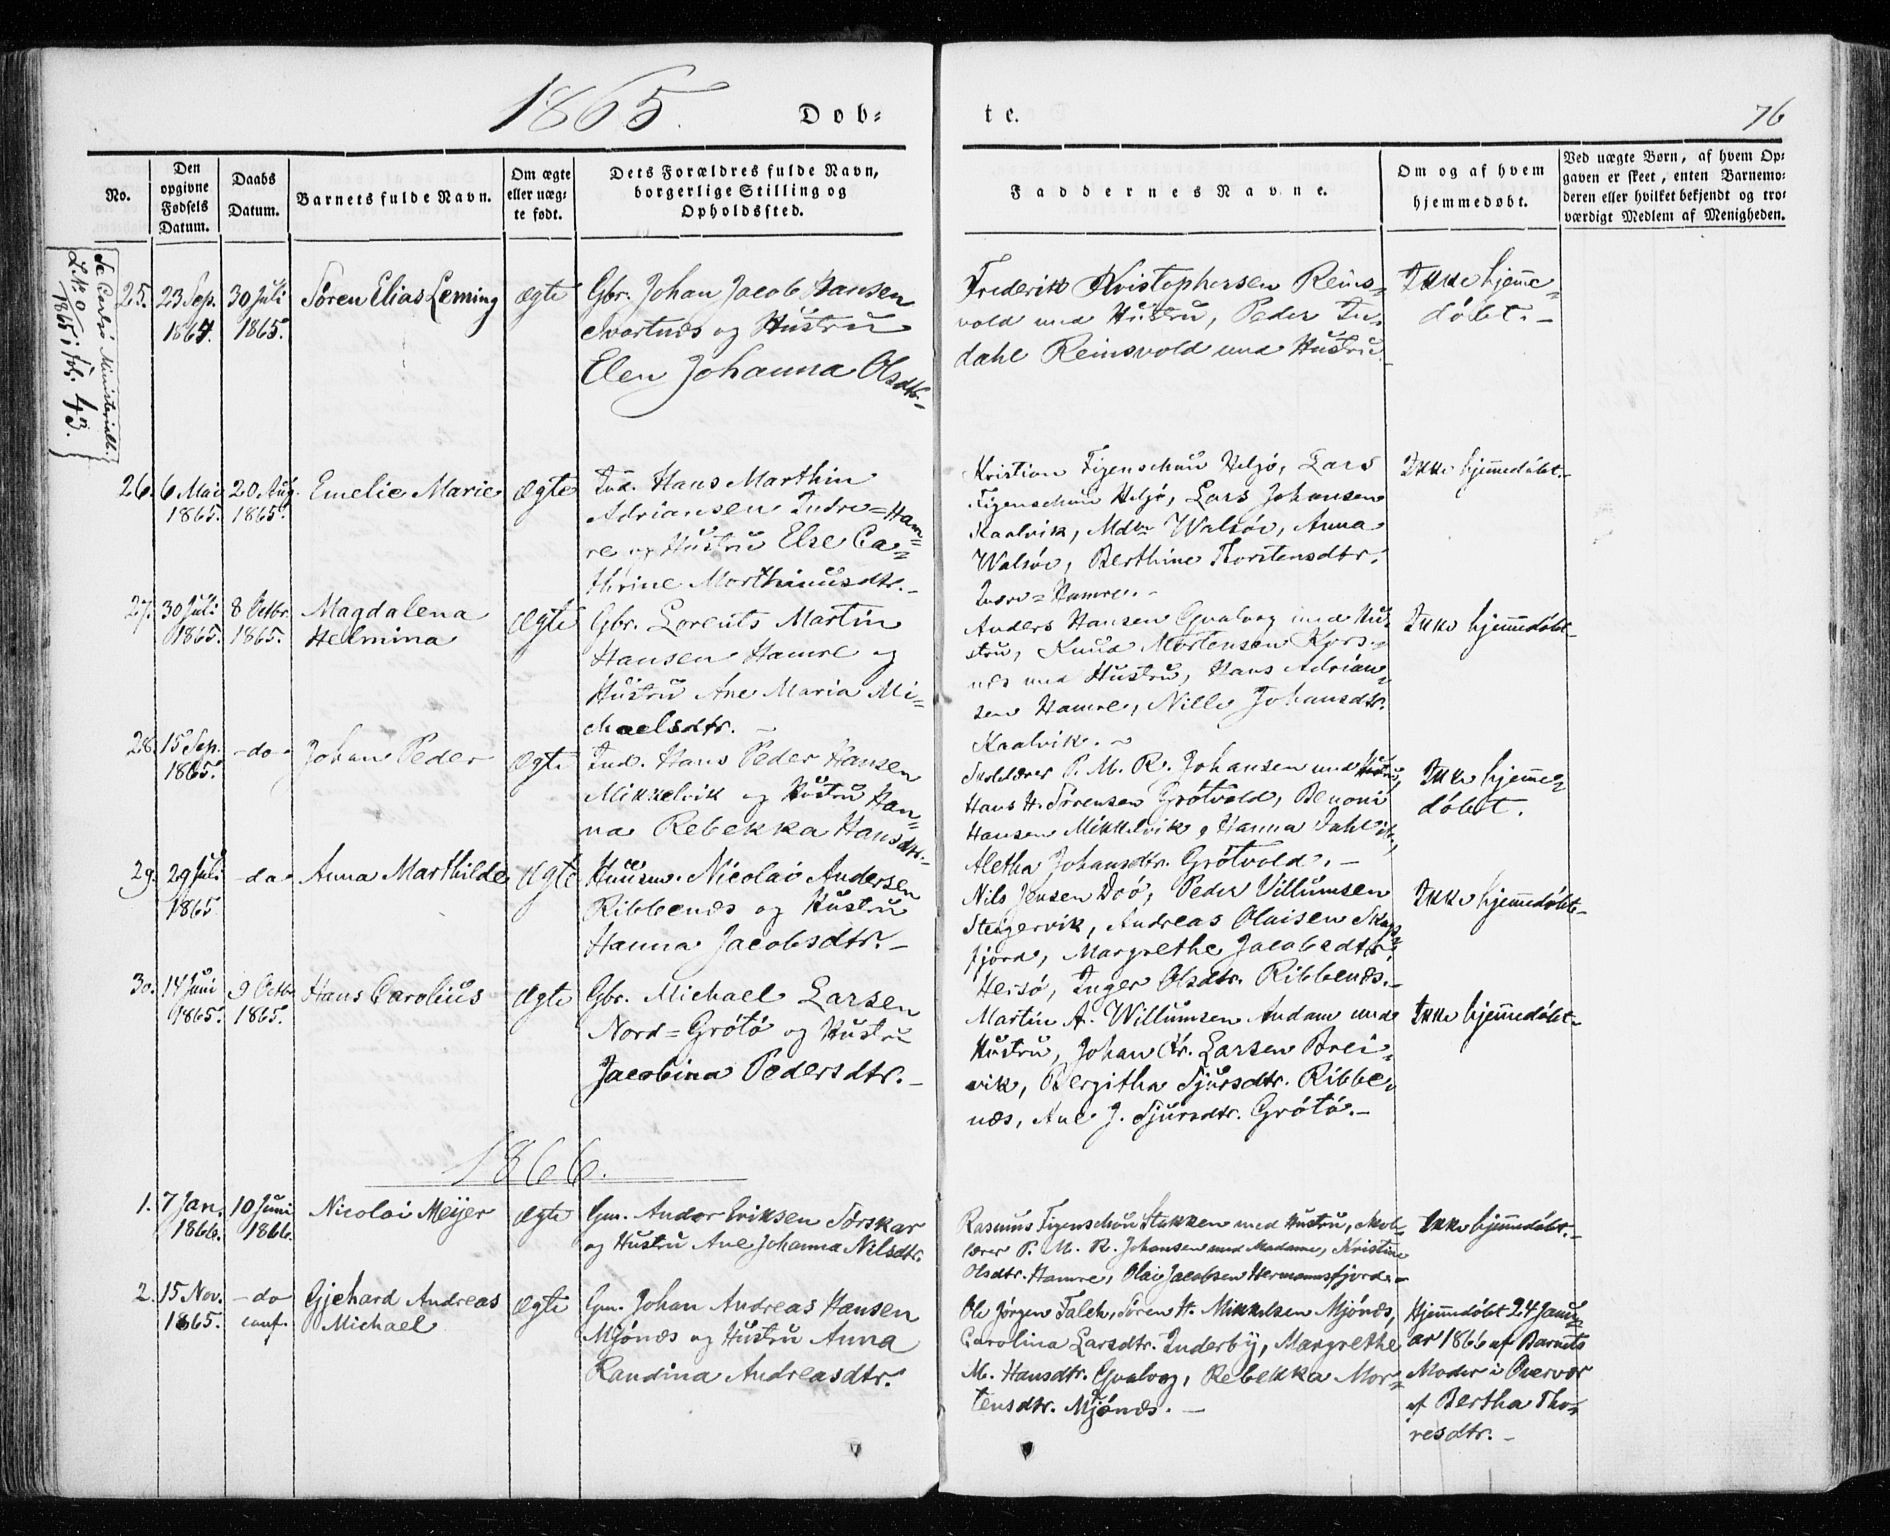 1865.
Døb-
te.
76
No.
Den opgivne Fødsels Datum.
Daabs Datum.
Barnets fulde Navn.
Om ægte eller uægte født.
Dets Forældres fulde Navn, borgerlige Stilling og Opholdssted.
Faddernes Navne.
Om og af hvem hjemmedøbt.
Ved uægte Børn, af hvem Opgaven er skeet, enten Barnemoderen eller hvilket bekjendt og troværdigt Medlem af Menigheden.
Se Carlsø Ministerialb.
1865, fol. 43.
25. 23 Sep. 1864. 30 Juli 1865. Søren Elias Leming ægte
Gbr. Johan Jacob Hansen
Svartnæs og Hustru
Elen Johanna Olsdtr.
Frederik Kristophersen Reins-
vold med Hustru, Peder In-
dahl Reinsvold med Hustru
Ikke hjemme-
døbt.
26. 6 Mai 1865. 20 Aug. 1865. Emelie Marie ægte
Ind. Hans Marthin
Adriansen Indre=Ham-
re og Hustru Else Ca-
thrine Morthinusdtr.
Kristian Figenschau Helgø, Lars
Figenschau Helgø, Lars Johansen
Kaalvik, Mdm Walsøe, Anna
Walsøe, Berthine Thorstensdtr.
Indre=Hamre.
Ikke hjemmedøbt
27. 30 Juli 1865. 8 Octbr. 1865. Magdalena
Helmina
ægte
Gbr. Lorents Martin
Hansen Hamre og
Hustru Ane Maria Mi-
chaelsdtr.
Anders Hansen Gvalvog med Hu-
stru, Knud Mortensen Kors-
næs med Hustru, Hans Adrian-
sen Hamre, Nille Johansdtr.
Kaalvik.
Ikke hjemmedøbt
28. 15 Sep. 1865. -do- Johan Peder ægte
Ind. Hans Peder Hansen
Mikkelvik og Hustru Han-
na Rebekka Hansdtr.
Skolelærer P. M. R. Johansen med Hustru,
Hans H. Sørensen Grøtvold, Benoni
Hansen Mikkelvik, Hanna Dahl
Aletha Johansdtr. Grøtvold.
Ikke hjemme-
døbt.
29. 29 Juli 1865 -do- Anna Marthilde ægte
Huusm. Nicolai Andersen
Ribbenæs og Hustru
Hanna Jacobsdtr.
Nils Jensen Doø, Peder Villumsen
Stengervik, Andreas Olaisen Skogs-
fjord, Margrethe Jacobsdtr.
Hersø, Inger Olsdtr. Ribbenæs.
Ikke hjemmedøbt
30. 14 Juni 1865. 9 Octbr 1865. Hans Carolius ægte
Gbr. Michael Larsen
Nord=Grøtø og Hustru
Jacobina Pedersdtr.
Martin A. Willumsen Andam med
Hustru, Johan Chr. Larsen Brei-
vik, Bergitha Sjursdtr. Ribbe-
næs, Ane J. Sjursdtr. Grøtø.
Ikke hjemmedøbt
1866.
1. 7 Jan. 1866. 10 Juni 1866 Nicolai Meijer ægte
Gm. Andor Eriksen Sørskar
og Hustru Ane Johanna Nilsdtr.
Rasmus Figenschou Stakken med Hustru, Skol-
lærer P. M. R. Johansen med Madame, Kristine
Olsdtr. Hamre, Olai Jacobsen Hermansfjord.
Ikke hjemmedøbt.
2. 15 Nov. 1865. -do conf. Gjehard Andreas
Michael
ægte
Gm. Johan Andreas Hansen
Mjønæs og Hustru Anna
Randina Andreasdtr.
Ole Jørgen Falch, Søren H. Mikkelsen Mjønæs,
Carolina Larsdtr. Inderby, Margrethe
M. Hansdtr. Gvalvog, Rebekka Mor-
tensdtr. Mjønæs.
Hjemmedøbt 24 Janu-
ar 1866 af Barnets
Moder i Overvær
af Bertha Tho-
resdtr.